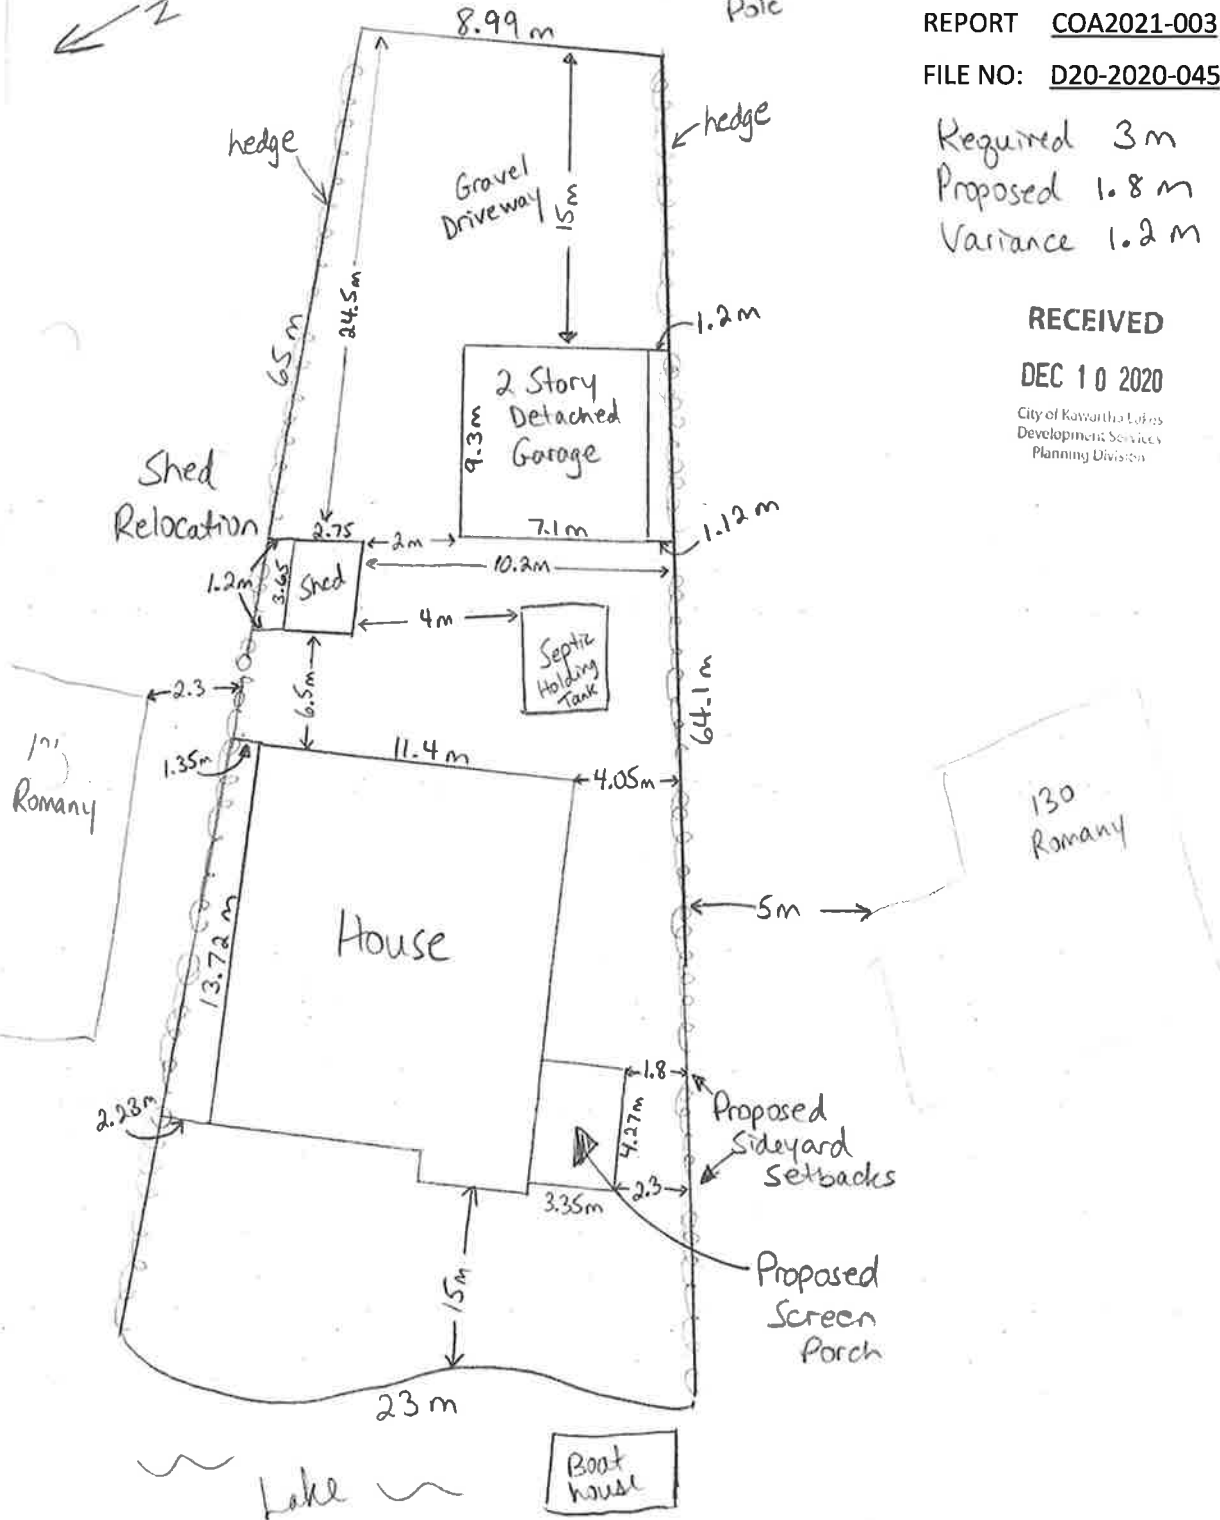 N
8.99 m
Pole
REPORT COA2021-003
FILE NO: D20-2020-045
Required 3m
Proposed 1.8 m
Variance 1.2 m
RECEIVED
DEC 10 2020
City of Kawartha Lakes
Development Services
Planning Division
hedge
hedge
Gravel
Driveway
15m
24.5m
65 m
1.2m
2 Story
Detached
Garage
9.3m
7.1m
1.12m
Shed
Relocation
2.75
2m
10.2m
1.2m
3.65
Shed
4m
Septic
Holding
Tank
6.5m
64.1 m
2.3
1.35m
11.4 m
4.05m
Romany
130
Romany
5m
House
13.72 m
2.23m
1.8
4.27m
Proposed
Sideyard
Setbacks
2.3
3.35m
15m
Proposed
Screen
Porch
23 m
Lake
Boat
house